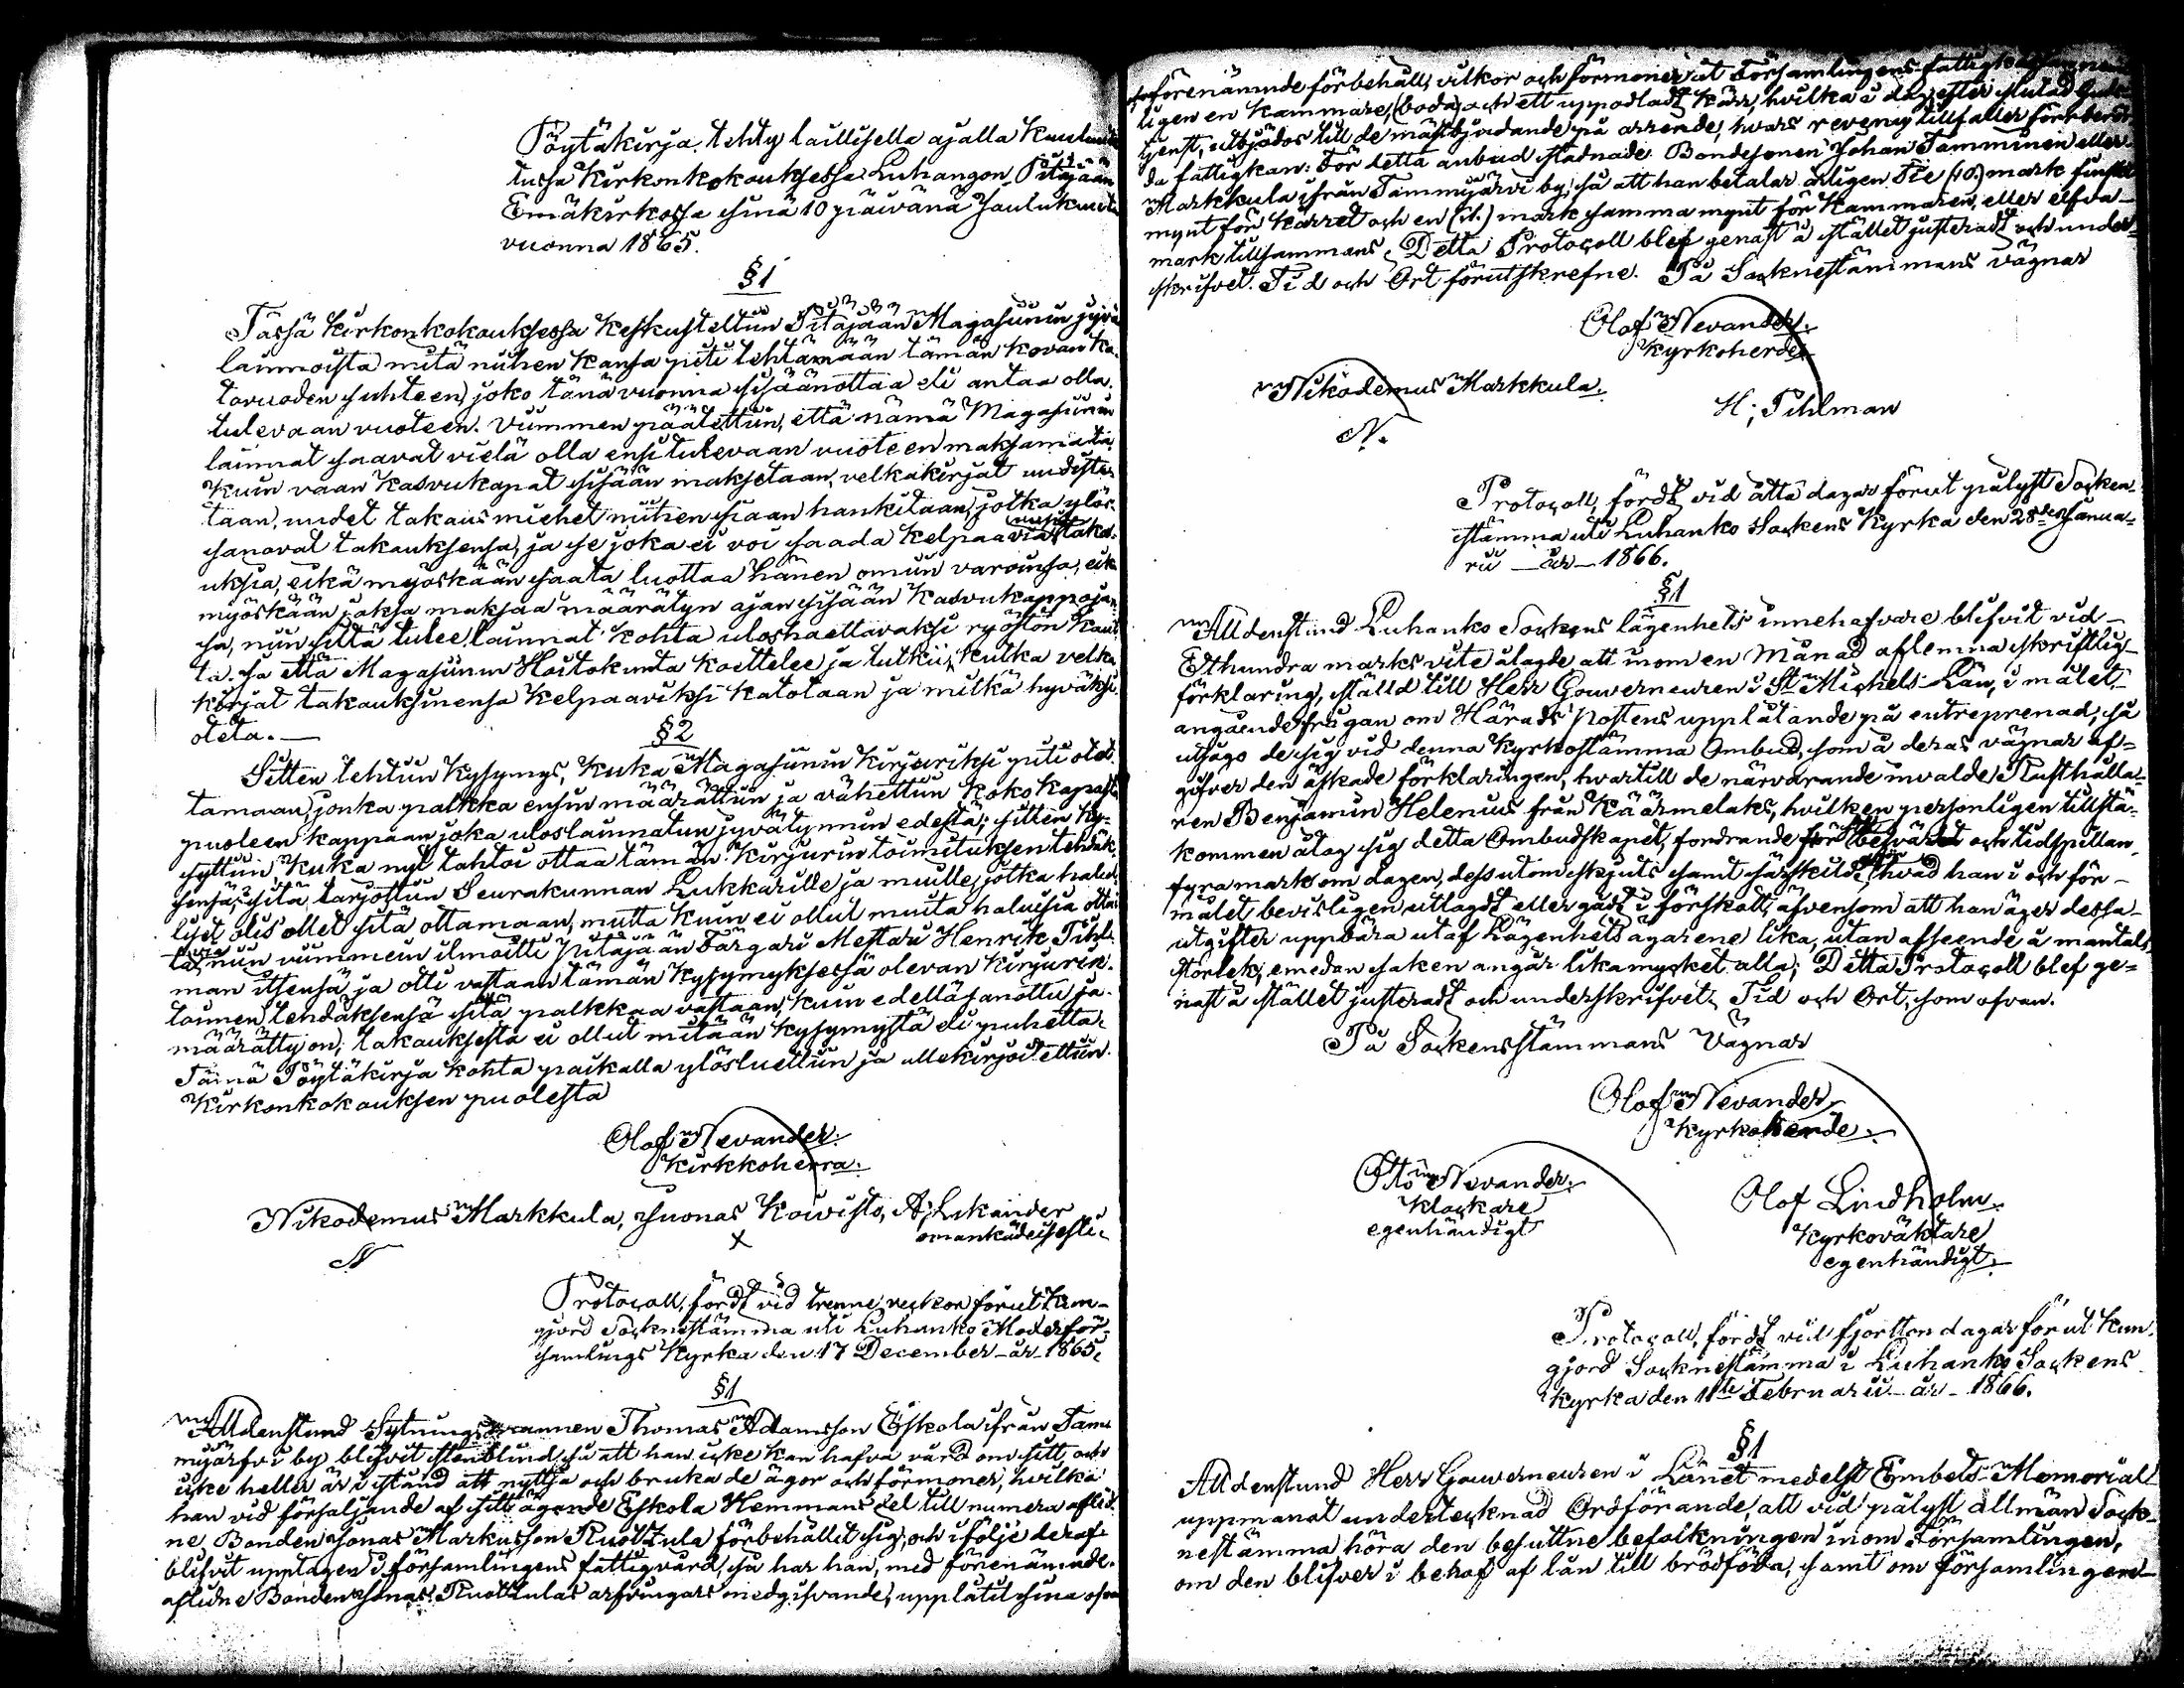 Pöytäkirja, tehty laillisella ajalla Kuulu
tussa Kirkonkokouksessa Luhangon Pitäjään
Emäkirkossa sinä 10 päivänä Joulukuuta
vuonna 1865.
§1
Tässä Kirkonkokouksessa Keskusteltiin Pitäjään Magasiinin jyvä
lainnoista, mitä niihen Kansa piti tehtämään tämän Kovan Ka-
tovuoden suhteen, joko tänä vuonna sisäänottaa eli antaa olla
tulevaan vuoteen. Viimmen päätettiin, että nämä Magasiinin
lainnat saavat vielä olla ensitulevaan vuoteen maksamata,
Kuin vaan Kasvukapat sisään maksetaan, velkakirjat uudiste-
taan, uudet takausmiehet niihen siaan hankitaan, jotka ylös-
sanovat takauksensa, ja se joka ei voi saada Kelpaavia taka-
uksia, eikä myöskään saata luottaa hänen omiin varoinsa, eik
myöskään jaksa maksaa määrätyn ajan sisään Kasvukappoja-
sa, niin siltä tulee lainnat Kohta uloshaettavaksi ryöstön Kaut-
ta. ja että Magasiinin Hoitokunta Koettelee ja tutkii, Kutka velka
kirjat takauksinensa Kelpaaviksi katotaan ja mitkä hyväksi
oteta. —
§2
Sitten tehtiin Kysymys, Kuka Magasiinin Kirjuriksi piti otet-
tamaan, jonka palkka ensin määrättiin ja vähettiin Koko Kapasta
puoleen kappaan joka uloslainnatun jyvätynnin edestä; sitten Ky-
syttiin, Kuka nyt tahtoi ottaa tämän Kirjurin toimituksen tehdäk-
sensä, sitä tarjottiin Seurakunnan Lukkarille ja muille, jotka halul-
liset olis ollet sitä ottamaan, mutta Kuin ei ollut muita halusia otta-
ta, niin viimmein ilmoitti Pitäjään Färgäri Mestari Henrik Pihl-
man itsensä, ja otti vastaan tämän Kysymyksessä olevan Kirjurin-
toimen tehdäksensä sitä palkkaa vastaan, Kuin edellä sanottu ja
määrätty on, takauksesta ei ollut mitään Kysymystä eli puhetta.
Tämä Pöytäkirja Kohta paikalla ylösluettiin ja allekirjoitettiin.
Kirkonkokouksen puolesta
Olof Nevander.
Kirkkoherra.
Nikodemus Markkula, Juonas Koivisto, A; Lukander
N X omankädeisesti.
Protocoll, fördt vid trenne veckor förut Kun-
gjord Socknestämma uti Luhanko Moderför-
samlings Kyrka den 17 December år 1865.
§1
Alldenstund Sytningsmannen Thomas Adamsson Eskola ifrån Tam-
mijärfvi by blifvit stenblind, så att han icke kan hafva vård om sitt, och
icke heller är i stånd att nyttja och bruka de ägor och förmoner, hvilka
han vid försäljande af sitt ägande Eskola Hemmans del till numera aflid
ne Bonden Jonas Markusson Ruottula förbehållit sig, och i följe deraf
blifvit upptagen i församlingens fattigvård, så har han, med förenämnde
aflidne Bonden Jonas Ruottulas arfvingars medgifvande, upplåtit sina ofvan
förenämnde förbehåll, vilkor och förmoner åt Församlingens fattigkassa
ligen en Kammare, boda, och ett uppodladt Kärr, hvilka i dag, efter slutad Guds-
tjenst, utbjödos till de mästbjudande på arrende, hvars reveny tillfaller förberör
da fattigkan: För detta anbud stadnade Bondesonen Johan Tamminen eller
Markkula ifrån Tammijärvi by, så att han betalar årligen Tie (10.) mark finskt
mynt för Kärret och en (1.) mark samma mynt för Kammaren, eller elfva
mark tillsammans. Detta Protocoll blef genast å stället justeradt och under-
skrifvet. Tid och Ort förutskrefne. På Socknestämmans vägnar
Olof Nevander.
Kyrkoherde.
Nikodemus Markkula.
N.
H; Pihlman
Protocoll, fördt vid åtta dagar förut pålyst Socken-
stämma uti Luhanko Sockens Kyrka den 28de Janua-
rii år 1866.
§1
Alldenstund Luhanko Sockens lägenhets innehafvare blifvit vid
Etthundra marks vite ålagde att inom en Månad aflemna skriftlig
förklaring, ställd till Herr Gouverneuren i St Michels Län, i målet,
angående frågan om Härads Postens upplåtande på entreprenad, så
utsågo de sig vid denna Kyrkostämma Ombud, som å deras vägnar af-
gifver den äskade förklaringen, hvartill de närvarande invalde Rusthålla-
ren Benjamin Helenius från Käärmelaks, hvilken personligen tillstä-
kommen åtog sig detta Ombudskapet, fordrande för besväret och tidspillan
fyra mark om dagen, dessutom skjuts samt särskildt, hvad han i och för
målet bevisligen utlagdt eller gådt i förskott, äfvensom att han äger dessa
utgifter uppbära utaf Lägenhets ägarene lika, utan afseende å mantals
storlek, emedan saken angår likamycket alla; Detta Protocoll blef ge-
nast å stället justeradt och underskrifvet. Tid och Ort, som ofvan.
På Sockenstämmans Vägnar
Olof Nevander.
Kyrkoherde.
Otto Nevander.
Klockare
egenhändigt
Olof Lindholm.
Kyrkoväktare
egenhändigt.
Protocoll, fördt vid fjortton dagar förut Kun-
gjord Socknestämma i Luhanko Sockens
Kyrka den 11te Februarii år 1866.
§1
Alldenstund Herr Gouverneuren i Länet medelst Embets-Memorial
uppmanat undertecknad Ordförande, att vid pålyst allmän Sock-
nestämma höra den besuttne befolkningen inom Församlingen,
om den blifver i behof af lån till brödföda, samt om församlingen